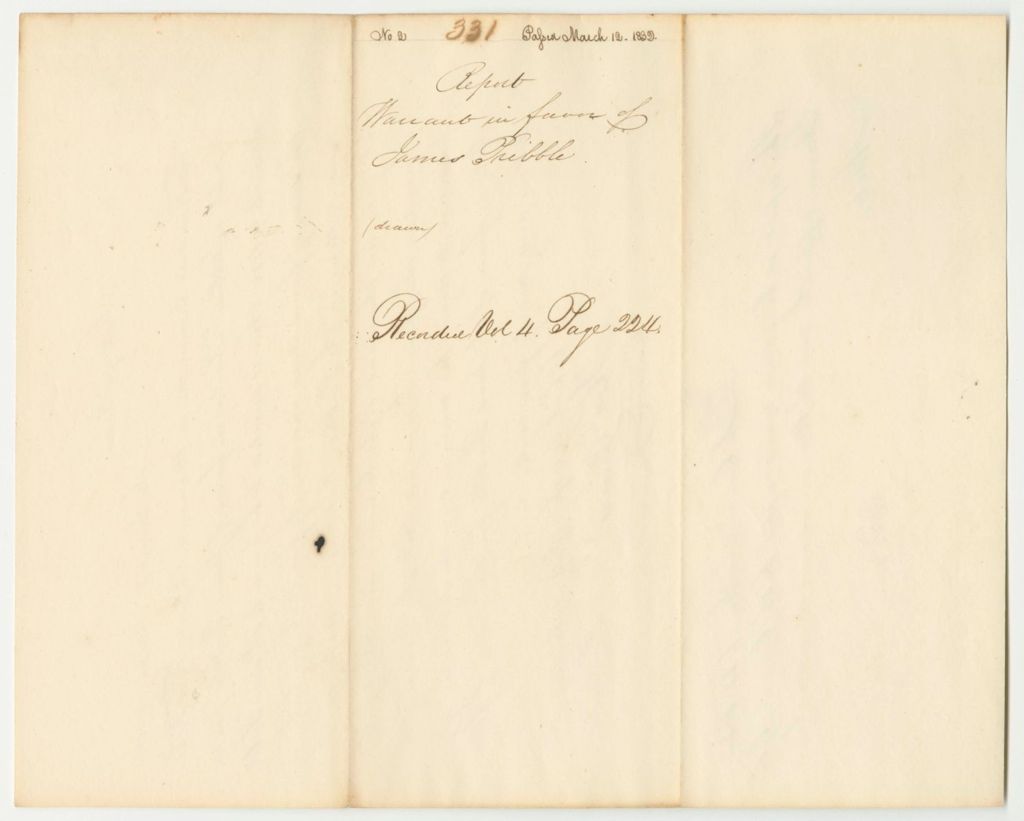 No 2 331 Passed March 12. 1832.
Report
Warrant in favor of
James Tribble.
(drawn)
Recorded Vol 4. Page 224.